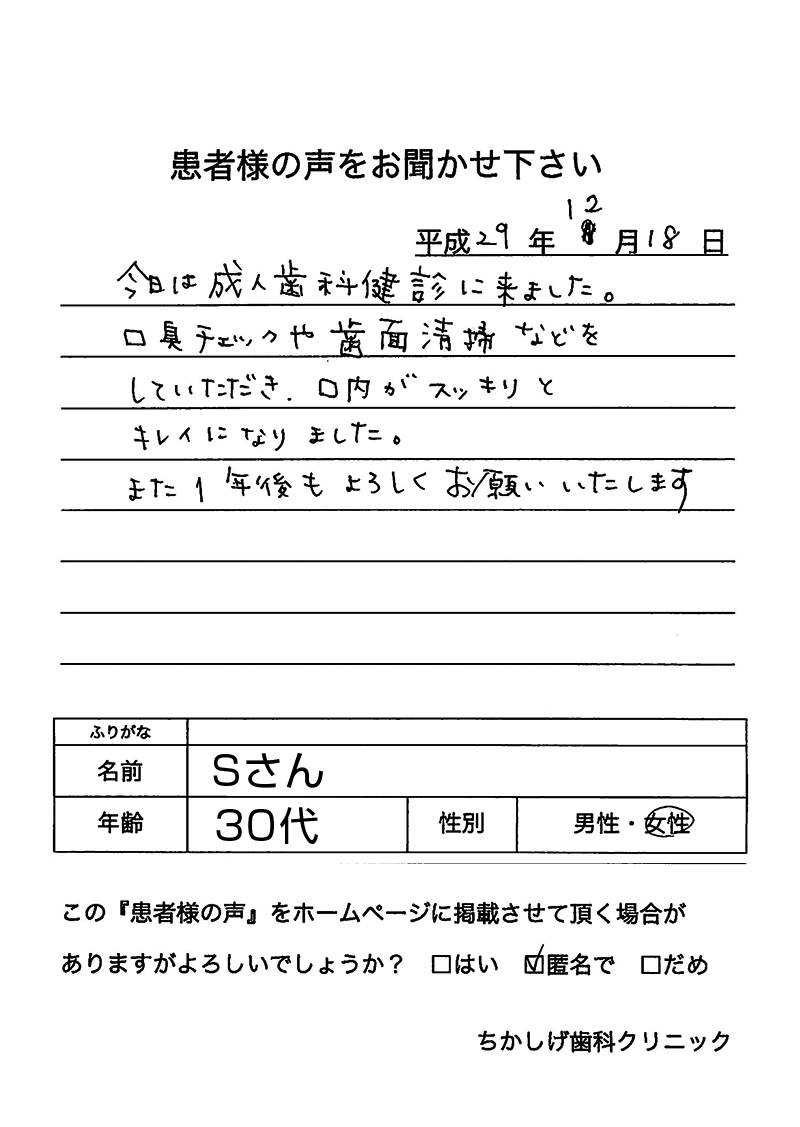 患者様の声をお聞かせ下さい
平成29年12月18日
今日は成人歯科健診に来ました。
口臭チェックや歯面清掃などを
していただき、口内がスッキリと
キレイになりました。
また1年後もよろしくお願いいたします
ふりがな
名前 Sさん
年齢 30代 性別 男性・女性
この『患者様の声』をホームページに掲載させて頂く場合が
ありますがよろしいでしょうか？ □はい ☑匿名で □だめ
ちかしげ歯科クリニック